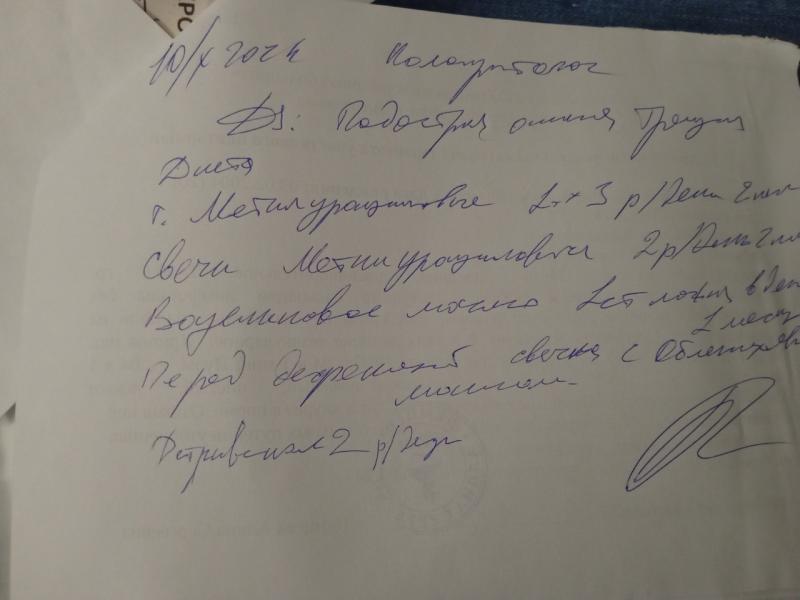 10/X 2024 Колопроктолог
DS: Подострая анальная трещина
Диета
т. Метилурациловые 1т × 3 р/день 2
Свечи Метилурациловые 2 р/день 2
Вазелиновое масло 1 ст ложка в день
1 меся
Перед дефекацией свечка с Облепихов
маслом
2 р/